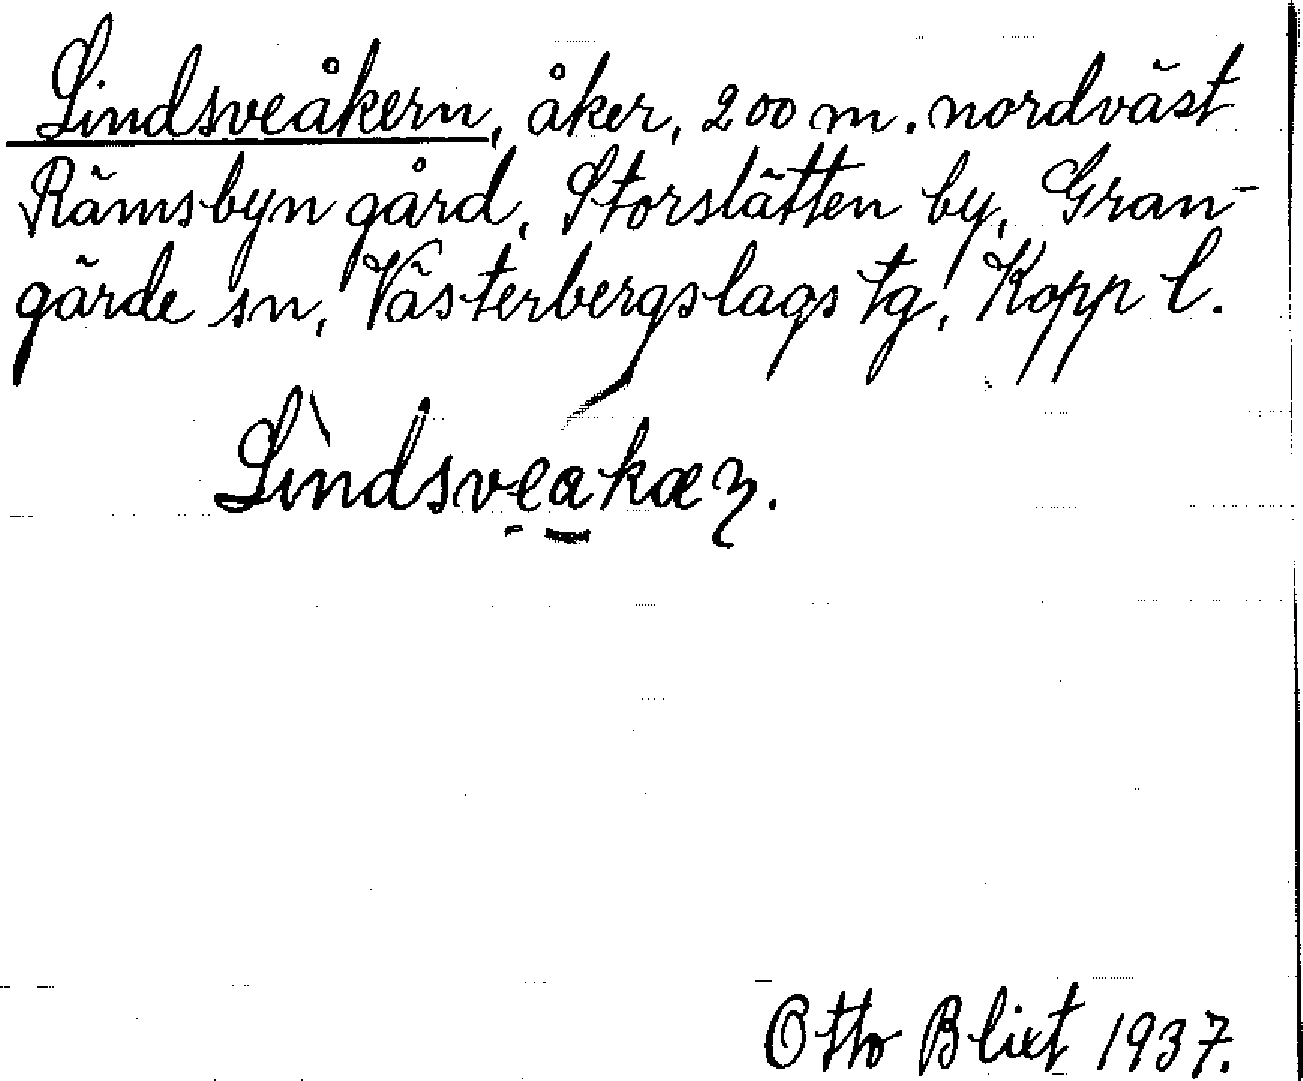 Lindsveåkern, åker, 200 m. nordväst
Rämsbyn gård, Storslätten by, Gran-
gärde sn, Västerbergslags tg, Kopp l.
Lìndsveakæꝛ.
Otto Blixt 1937.